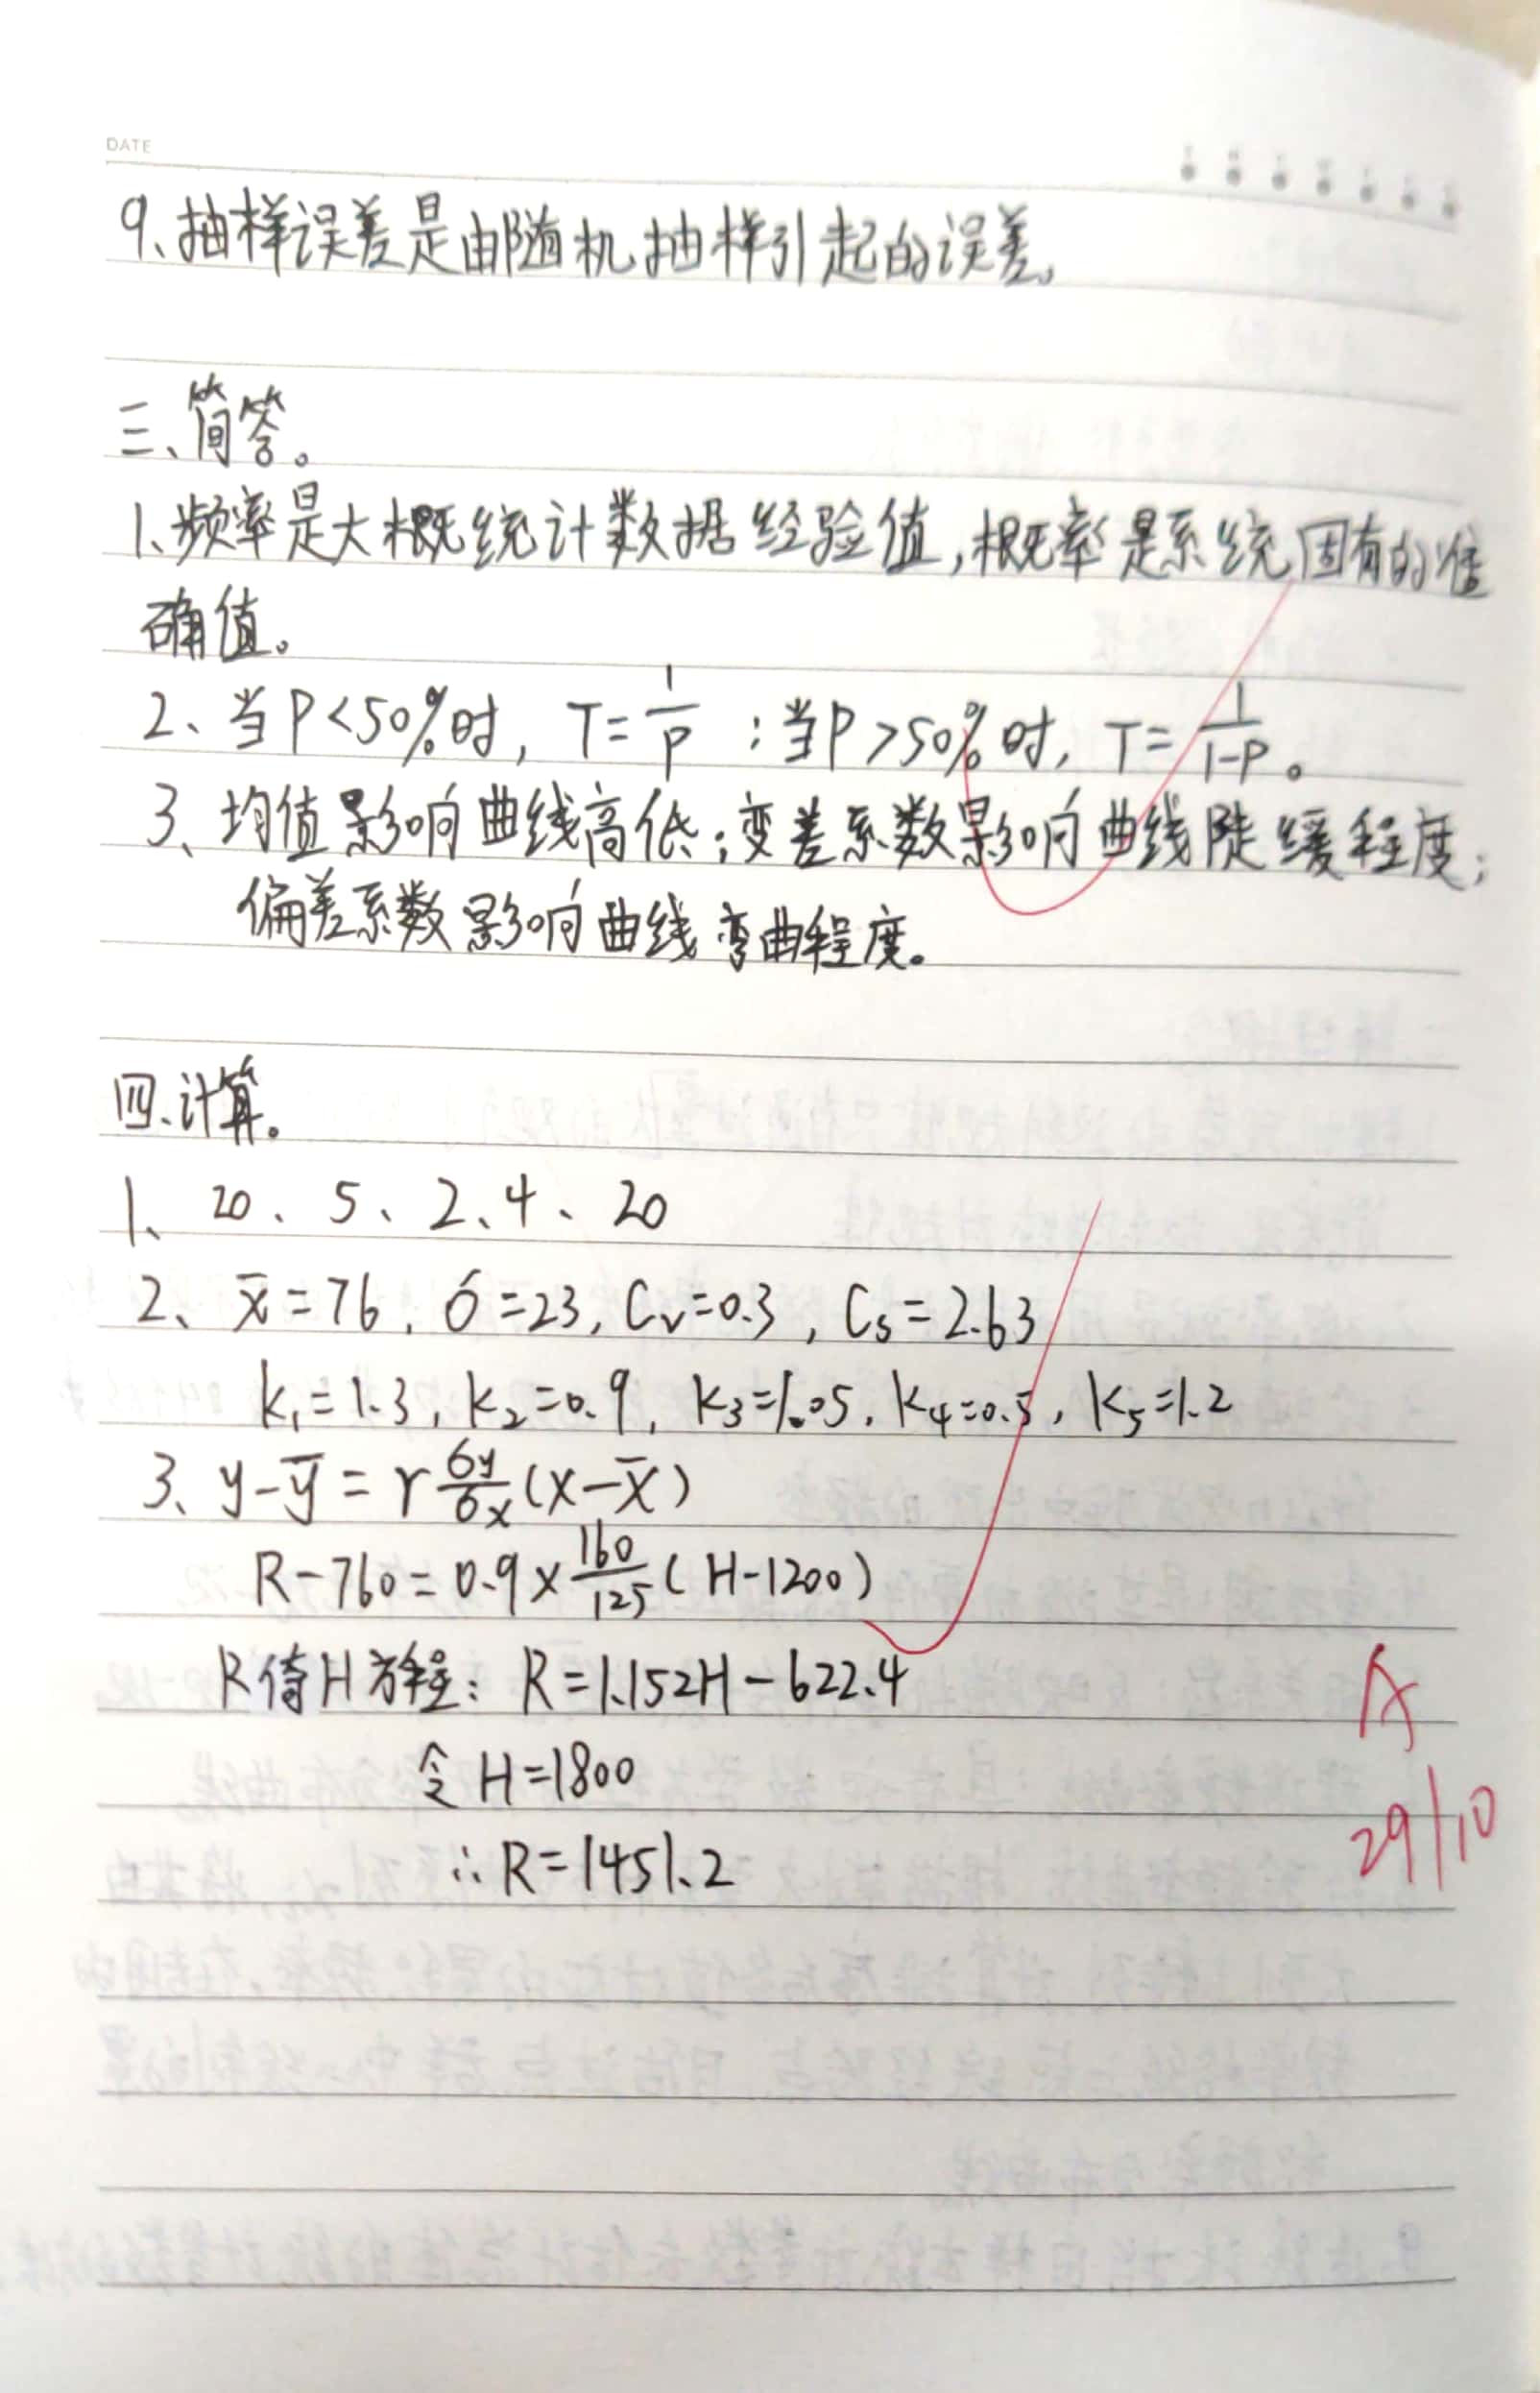 DATE
9、抽样误差是由随机抽样引起的误差。
三、简答。
1、频率是大概统计数据经验值,概率是系统固有的准
确值。
2、当P<50%时, T=1/P ;当P>50%时, T=1/(1-P)。
3、均值影响曲线高低;变差系数影响曲线陡缓程度;
偏差系数影响曲线弯曲程度。
四、计算。
1、20、5、2、4、20
2、x̄=76, σ=23, Cv=0.3, Cs=2.63
k₁=1.3, k₂=0.9, k₃=1.05, k₄=0.5, k₅=1.2
3、y-ȳ=r σy/σx (x-x̄)
R-760=0.9×160/125(H-1200)
R倚H方程: R=1.152H-622.4
令H=1800
∴R=1451.2
A
29/10